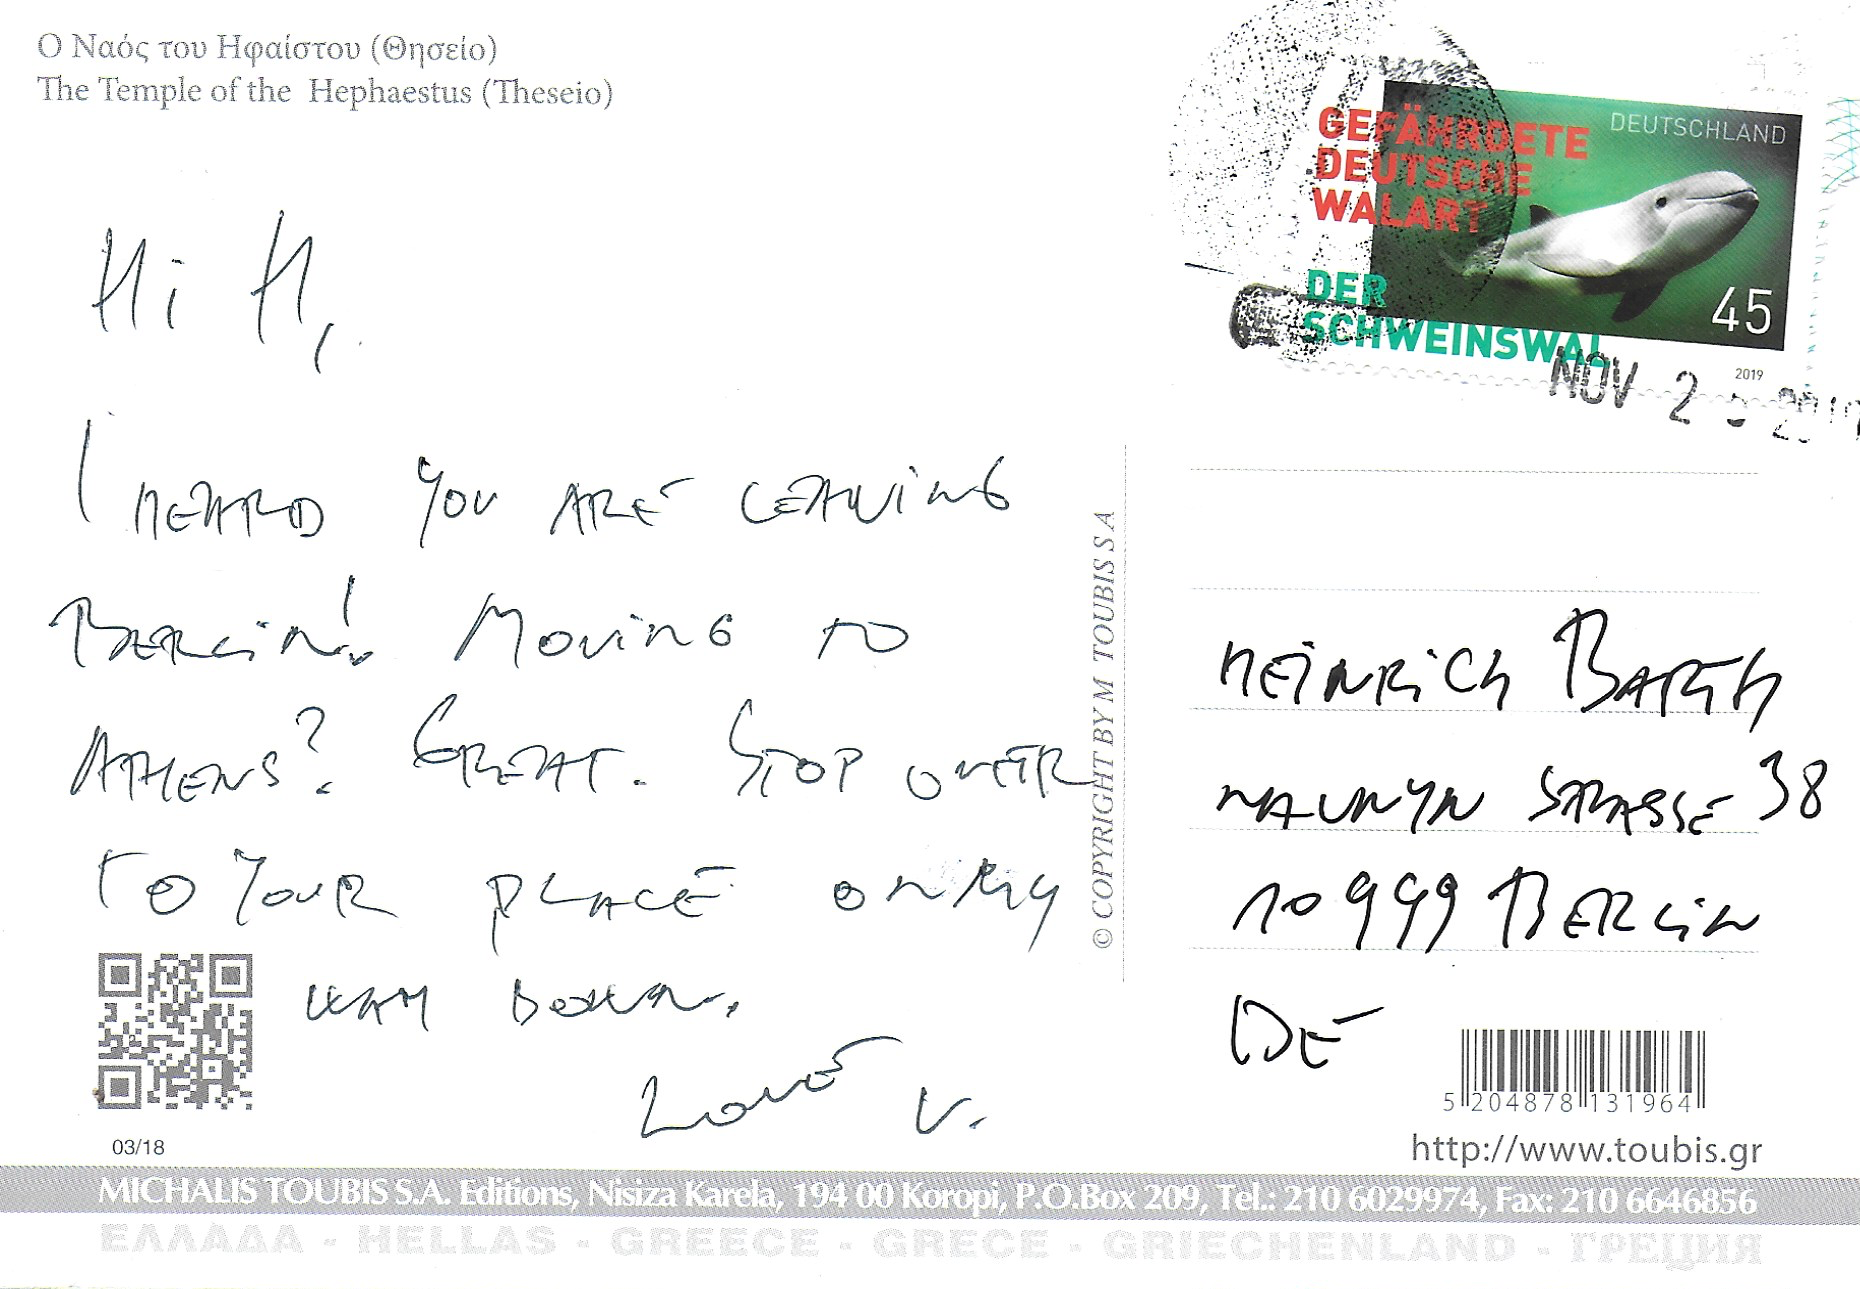 Ο Ναός του Ηφαίστου (Θησείο)
The Temple of the Hephaestus (Theseio)
GEFÄHRDETE
DEUTSCHE
WALART
DER
SCHWEINSWAL
DEUTSCHLAND
45
2019
NOV 2
Hi H,
I HEARD YOU ARE LEAVING
BERLIN! MOVING TO
ATHENS? GREAT. STOP OVER
TO YOUR PLACE ON MY
WAY DOWN.
LOVE V.
© COPYRIGHT BY M TOUBIS S A
HEINRICH BARTH
NAUNYN STRASSE 38
10999 BERLIN
DE
5 204878 131964
http://www.toubis.gr
03/18
MICHALIS TOUBIS S.A. Editions, Nisiza Karela, 194 00 Koropi, P.O.Box 209, Tel.: 210 6029974, Fax: 210 6646856
ΕΛΛΑΔΑ - HELLAS - GREECE - GRECE - GRIECHENLAND - ГРЕЦИЯ